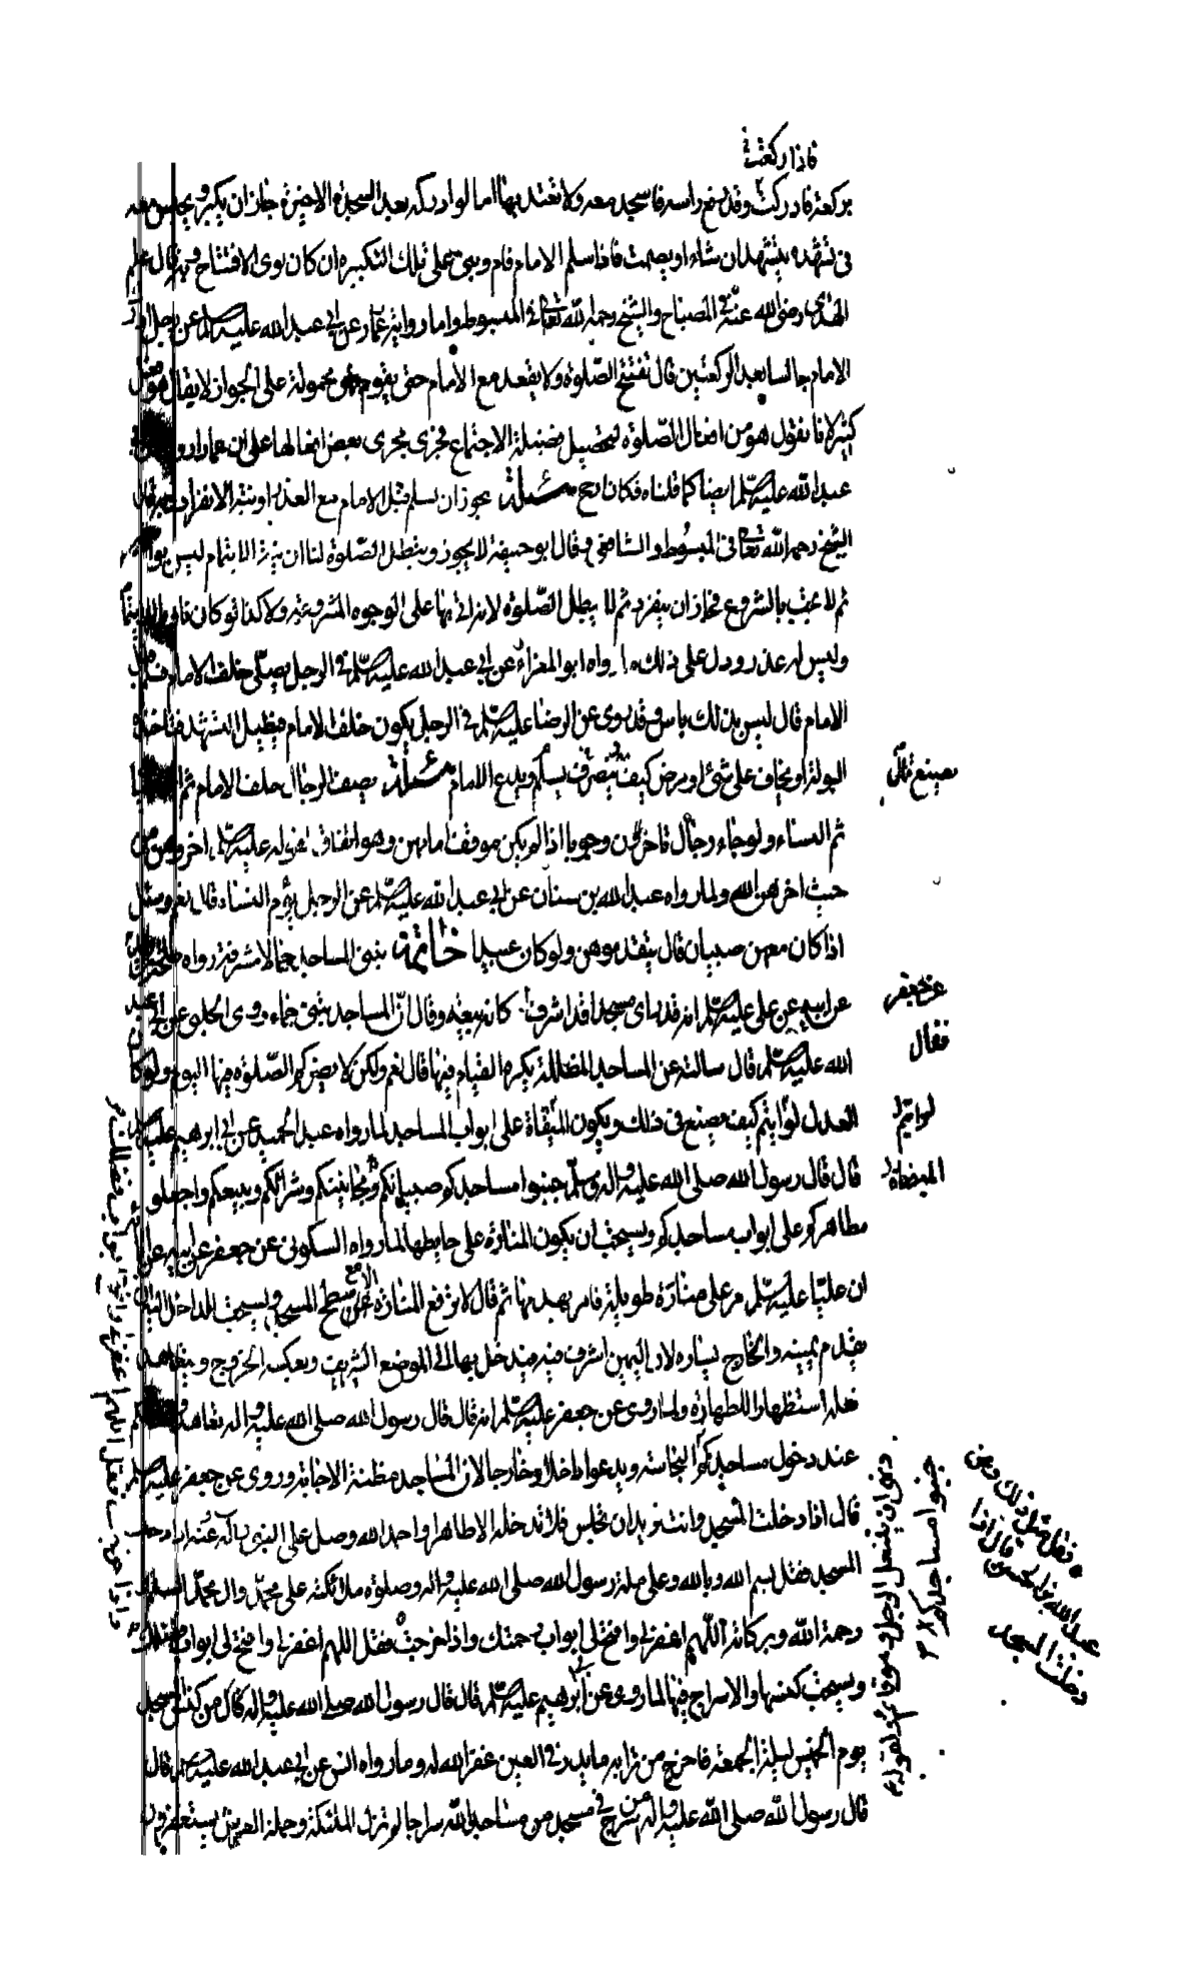 فاذا ركعت
بركعة فادركت وقد رفع راسه فاسجد معه ولا تعتد بها اما لو ادركه بعد السجدة الاخيرة جاز ان يكبر ويجلس معه
فى تشهده يتشهد ان شاء او يصمت فاذا سلم الامام قام وبنى على تلك التكبيرة ان كان نوى الافتتاح وبه قال علم
الهدى رضى الله عنه فى المصباح والشيخ رحمه الله تعالى فى المبسوط واما رواية عمار عن ابى عبد الله عليه السلم عن رجل ادرك
الامام جالسا بعد الركعتين قال تفتتح الصلوة ولا يقعد مع الامام حتى يقوم محمولة على الجواز لا يقال هو فعل
كثير لانا نقول هو من افعال الصلوة لتحصيل فضيلة الاجتماع فجرى مجرى بعض افعالها على ان عمارا روى
عبد الله عليه السلم ايضا كما قلناه فكان ارجح مسئلة يجوز ان يسلم قبل الامام مع العذر او نية الانفراد وبه قال
الشيخ رحمه الله تعالى فى المبسوط والشافعى وقال ابو حنيفة لا يجوز وتبطل الصلوة لنا ان نية الايتمام ليس بواجبة
ثم لا يجب بالشروع فجاز ان ينفرد ثم لا يبطل الصلوة لانه اتى بها على الوجوه المشروعة ولا كذا لو كان ناويا الايتمام
وليس له عذر ودل على ذلك ما رواه ابو المغراء عن ابى عبد الله عليه السلم فى الرجل يصلى خلف الامام فسلم قبل
الامام قال ليس بذلك باس وقد روى عن الرضا عليه السلم فى الرجل يكون خلف الامام فيطيل التشهد فتاخذه
البولة او يخاف على شئ او مرض كيف يتصرف يسلم ويدع الامام مسئلة يصف الرجال خلف الامام ثم
يصنع قال
ثم النساء ولو جاء رجال تاخرن وجوبا اذا لم يكن موقف امامهن وهو اتفاق لقوله عليه السلم اخروهن من
حيث اخرهن الله ولما رواه عبد الله بن سنان عن ابى عبد الله عليه السلم عن الرجل يؤم النساء قال نعم وسئل
اذا كان معهن صبيان قال يتقدموهن ولو كان عبيدا خاتمة تبنى المساجد جما لا مشرفة رواه طلحة
عن جعفر
عن ابيه عن على عليه السلم انه قد راى مسجدا قد اشرف كانه بيعة وقال ان المساجد تبنى جماء وروى الحلبى عن ابى عبد
الله عليه السلم قال سالته عن المساجد المظللة يكره القيام فيها قال نعم ولكن لا يضركم الصلوة فيها اليوم ولو كان
فقال
العدل لو رايتم كيف يصنع فى ذلك ويكون الميقاة على ابواب المساجد لما رواه عبد الحميد عن ابى ابرهيم عليه السلم
لرايتم
قال قال رسول الله صلى الله عليه واله وسلم جنبوا مساجدكم صبيانكم ومجانينكم وشرائكم وبيعكم واجعلوا
الميضاة
مطاهركم على ابواب مساجدكم ويستحب ان يكون المنارة على حايطها لما رواه السكونى عن جعفر عن ابيه عن
ان عليا عليه السلم مر على منارة طويلة فامر بهدمها ثم قال لا ترفع المنارة الا مع سطح المسجد ويستحب للداخل ان
يقدم يمينه والخارج يساره لان اليمين اشرف فيه فيدخل بها الى الموضع الشريف ويعكسه الخروج ويتعاهد
نعله استظهارا للطهارة ولما روى عن جعفر عليه السلم انه قال قال رسول الله صلى الله عليه واله تعاهدوا
عند دخول مساجدكم النجاسة ويدعو داخلا وخارجا لان المساجد مظنة الاجابة وروى عن جعفر عليه السلم
قال اذا دخلت المسجد وانت تريدان تجلس فلا تدخله الا طاهرا واحمد الله وصل على النبى
المسجد فقل بسم الله وبالله وعلى ملة رسول الله صلى الله عليه واله وصلوة ملائكته على محمد وال محمد السلم
رحمة الله وبركاته اللهم اغفر لى وافتح لى ابواب رحمتك واذا خرجت فقل اللهم اغفر لى وافتح لى ابواب فضلك
ويستحب كنسها والاسراج فيها لما روى عن ابى ابرهيم عليه السلم قال قال رسول الله صلى الله عليه واله قال من كنس المسجد
يوم الخميس ليلة الجمعة فاخرج من ترابه ما يذر فى العين غفر الله له وما رواه انس عن ابى عبد الله عليه السلم قال
قال رسول الله صلى الله عليه واله من اسرج فى مسجد من مساجد الله سراجا لم تزل الملئكة وحملة العرش يستغفرون
جنبوا مساجدكم
عبد الله بن الحسن قال اذا
دخلت المسجد